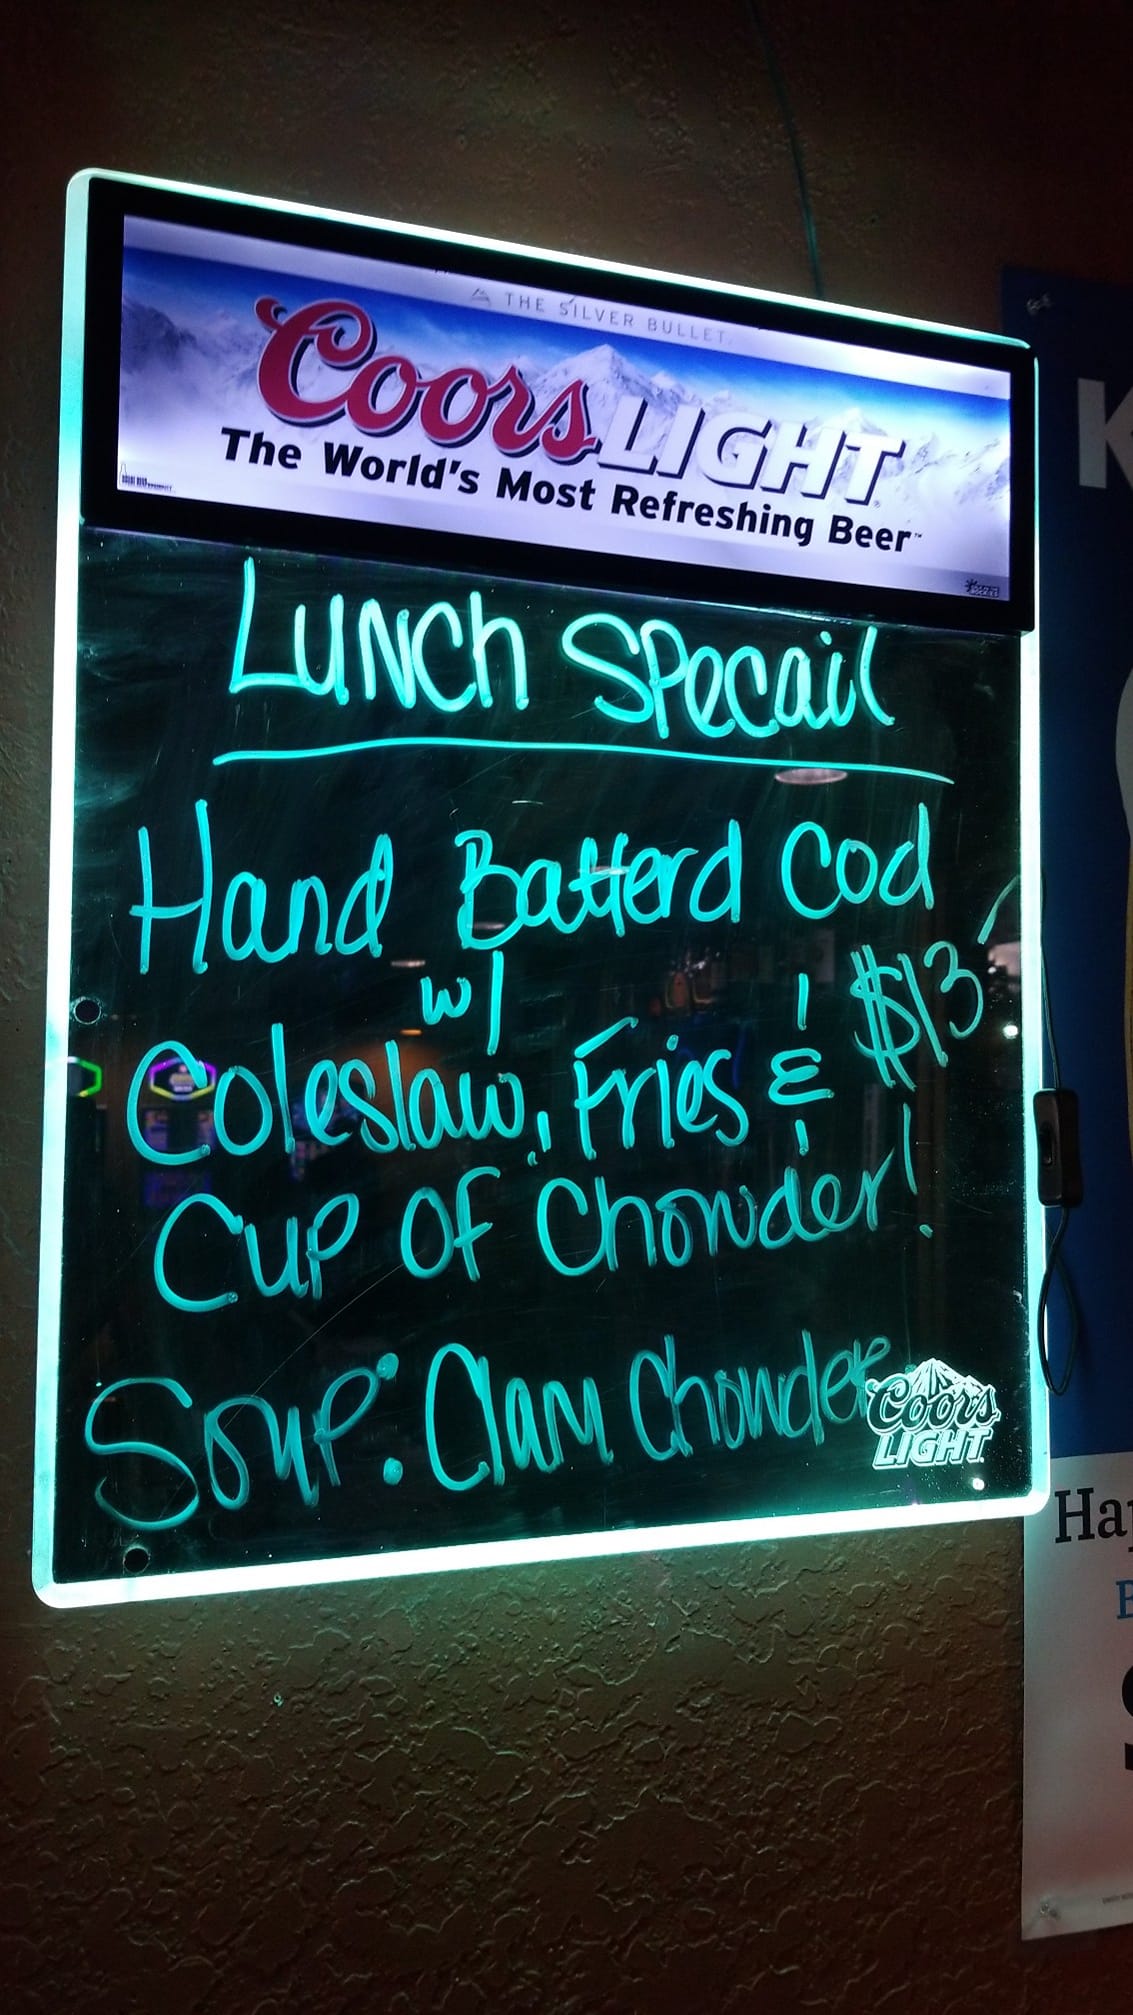 THE SILVER BULLET.
Coors LIGHT
The World's Most Refreshing Beer™
Lunch Specail
Hand Batterd Cod
w/ $13
Coleslaw, Fries &
Cup of Chowder!
Soup: Clam Chowder
Coors
LIGHT
K
Hap
B
S